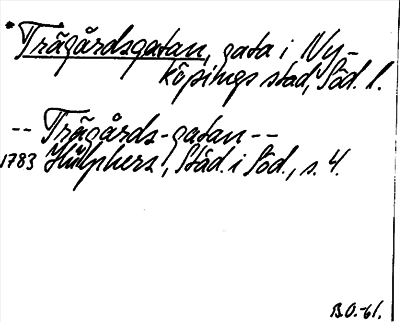 *Trägårdsgatan, gata i Ny-
köpings stad, Söd. l.
-- Trägårds-gatan --
1783 Hülphers, Städ. i Söd., s. 4.
B.O.-61.